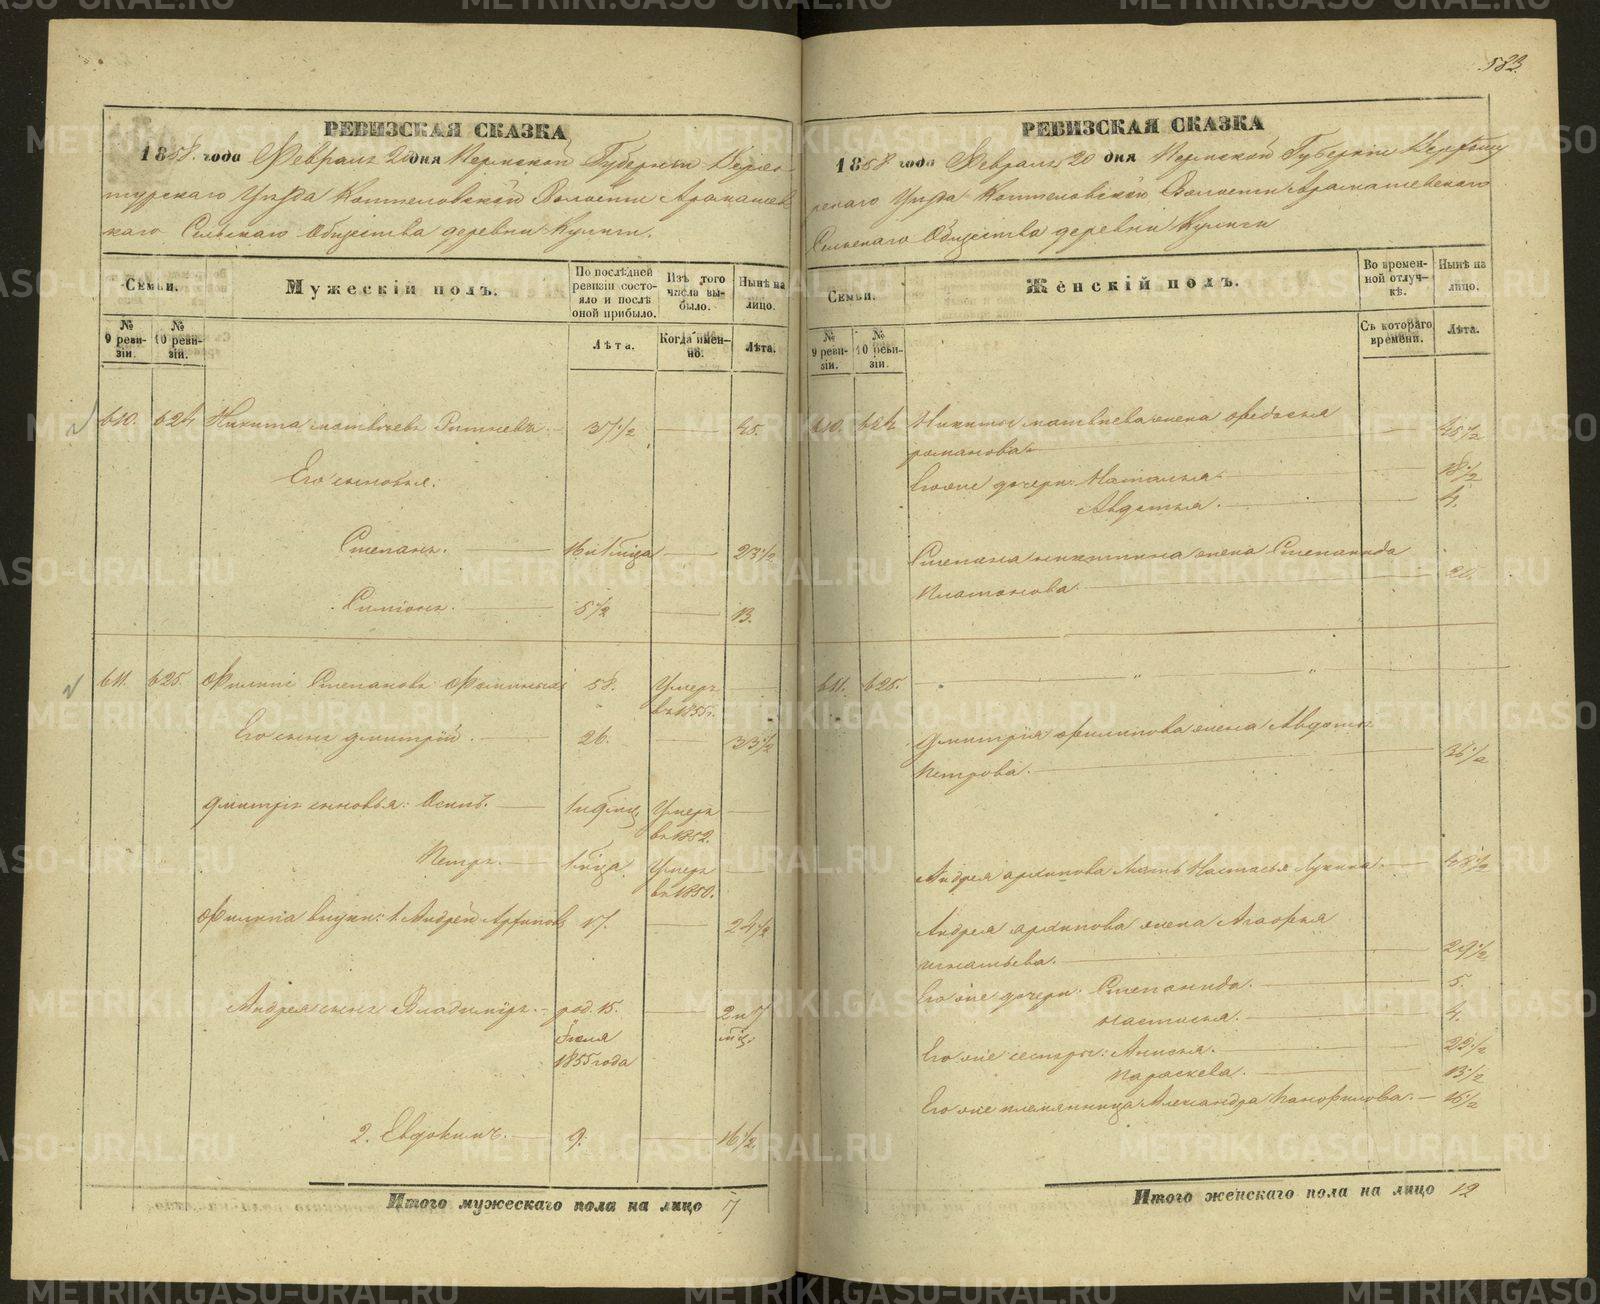 583.
РЕВИЗСКАЯ СКАЗКА
1858. года Февраля 20 дня Пермской Губерніи Верхо-
турскаго Уѣзда Коптеловской Волости Арамашев
скаго Сельскаго Общества деревни Кулиги.
Семьи.
№ 9 ревизіи.
№ 10 ревизіи.
Мужескій полъ.
По послѣдней
ревизіи состо-
яло и послѣ
оной прибыло.
Лѣта.
Изъ того
числа вы-
было.
Когда имен-
но.
Нынѣ на
лицо.
Лѣта.
610. 624 Никита Матвѣевъ 37 1/2 45.
Его сыновья:
Степанъ. 16 и 1 мѣсца 23 1/2
Симіонъ. 5 1/2 13.
611. 625. Филипъ Степановъ 58. Умеръ
въ 1855 г.
Его сынъ Дмитрій. 26. 33 1/2
Дмитрія сыновья: Осипъ. 1 и 9 мѣц. Умеръ
въ 1852.
Петръ. 1 мѣца. Умеръ
въ 1850.
Филипа внуки: 1. Андрей Архиповъ 17. 24 1/2
Андрея сынъ Владимиръ. род. 15. 2 и 7
Іюля мѣц.
1855 года
2. Евдокимъ. 9. 16 1/2
Итого мужескаго пола на лицо 7
РЕВИЗСКАЯ СКАЗКА
1858 года Февраля 20 дня Пермской Губерніи Верхоту
рскаго Уѣзда Коптеловской Волости Арамашевскаго
Сельскаго Общества деревни Кулиги
Семьи.
№ 9 ревизіи.
№ 10 ревизіи.
Женскій полъ.
Во времен-
ной отлуч-
кѣ.
Съ котораго
времени.
Нынѣ на
лицо.
Лѣта.
610. 624. Никиты Матвиева жена Федосья
Романова. 45 1/2
Его же дочери: Наталья. 18 1/2
Авдотья. 4.
Степана Никитина жена Степанида
Платонова. 20.
611. 625. " "
Дмитрія Филипова жена Авдотья
Петрова. 36 1/2
Андрея Архипова мать Настасья Лукина. 48 1/2
Андрея Архипова жена Агафья
Игнатьева. 29 1/2
Его же дочери: Степанида. 5.
Настасья. 4.
Его же сестры: Анисья. 22 1/2
Параскева. 13 1/2
Его же племянница Александра Панфилова. 15 1/2
Итого женскаго пола на лицо 12
METRIKI.GASO-URAL.RU